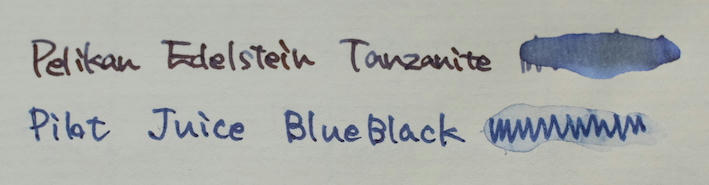 Pelikan Edelstein Tanzanite
Pilot Juice BlueBlack